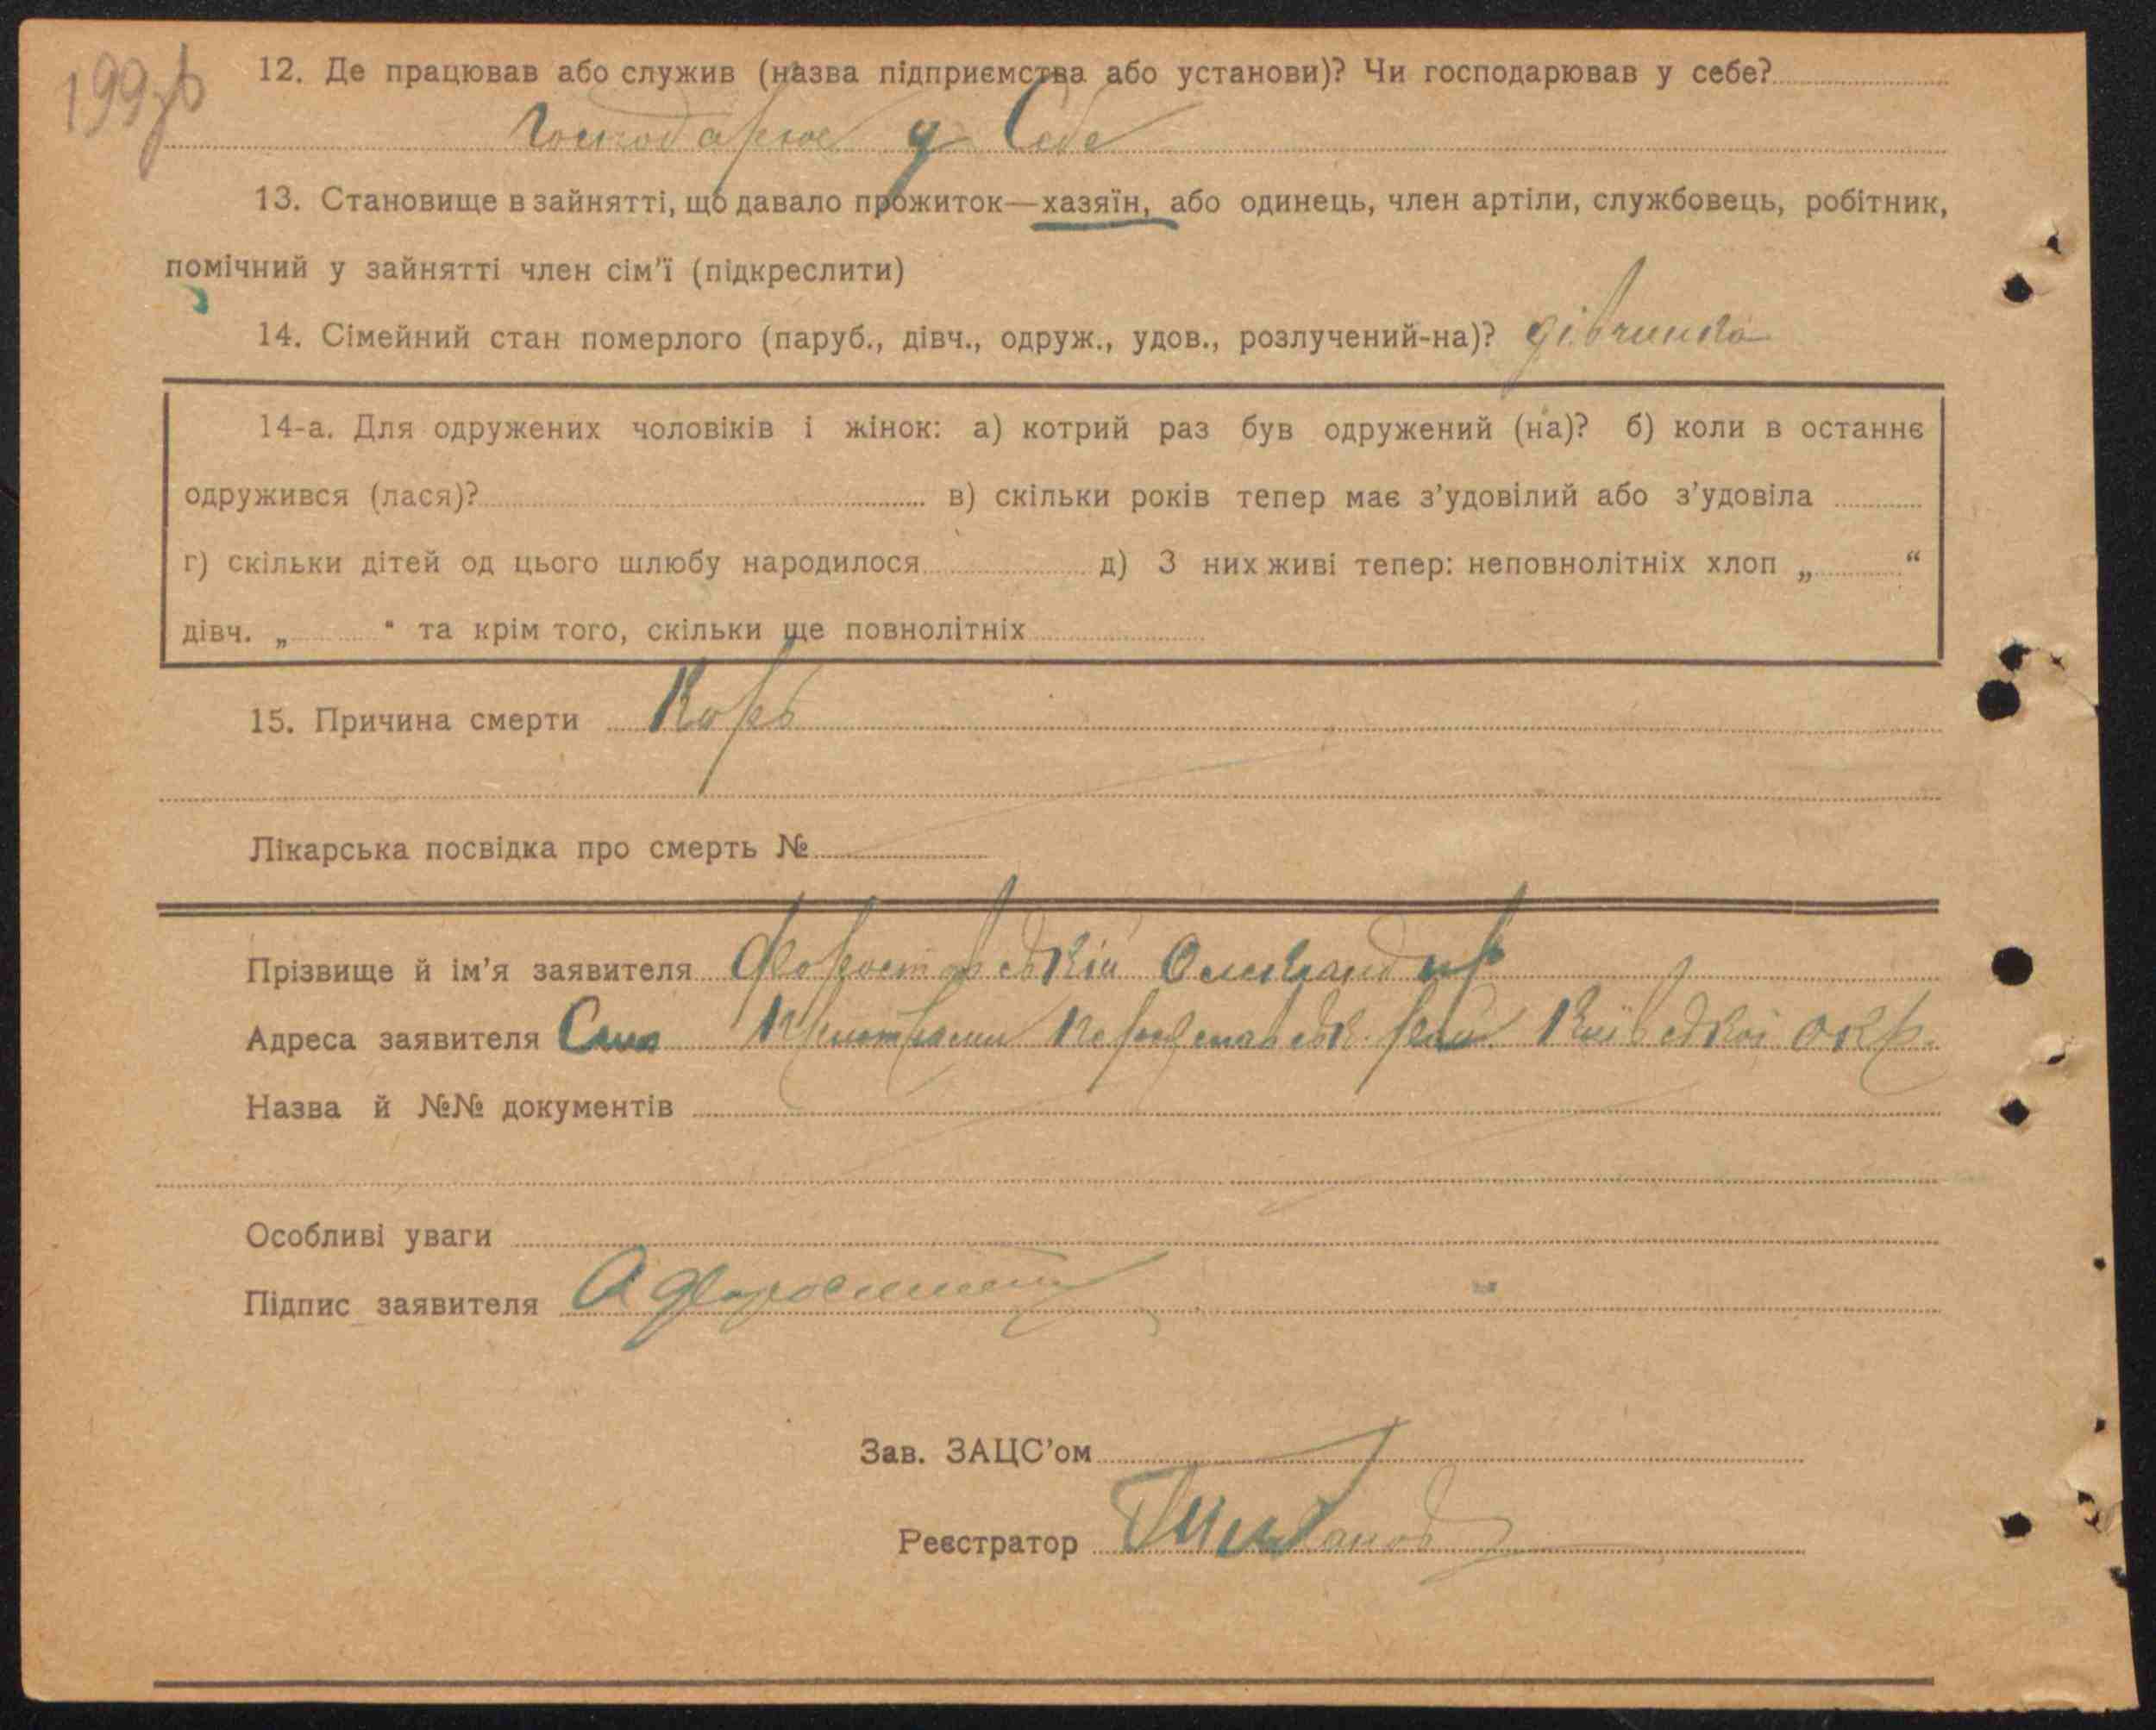 199зв
12. Де працював або служив (назва підприємства або установи)? Чи господарював у себе?
Господарює у Себе
13. Становище в зайнятті, що давало прожиток—хазяїн, або одинець, член артіли, службовець, робітник,
помічний у зайнятті член сім'ї (підкреслити)
14. Сімейний стан померлого (паруб., дівч., одруж., удов., розлучений-на)? дівчинка
14-а. Для одружених чоловіків і жінок: а) котрий раз був одружений (на)? б) коли в останнє
одружився (лася)? в) скільки років тепер має з'удовілий або з'удовіла
г) скільки дітей од цього шлюбу народилося д) З них живі тепер: неповнолітніх хлоп „ “
дівч. „ “ та крім того, скільки ще повнолітніх
15. Причина смерти Корь
Лікарська посвідка про смерть №
Прізвище й ім'я заявителя Форостовській Олександр
Адреса заявителя Село Київської окр.
Назва й №№ документів
Особливі уваги
Підпис заявителя А
Зав. ЗАЦС'ом
Реєстратор